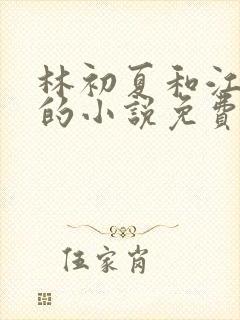 林初夏和江
的小說免費
伍家肖